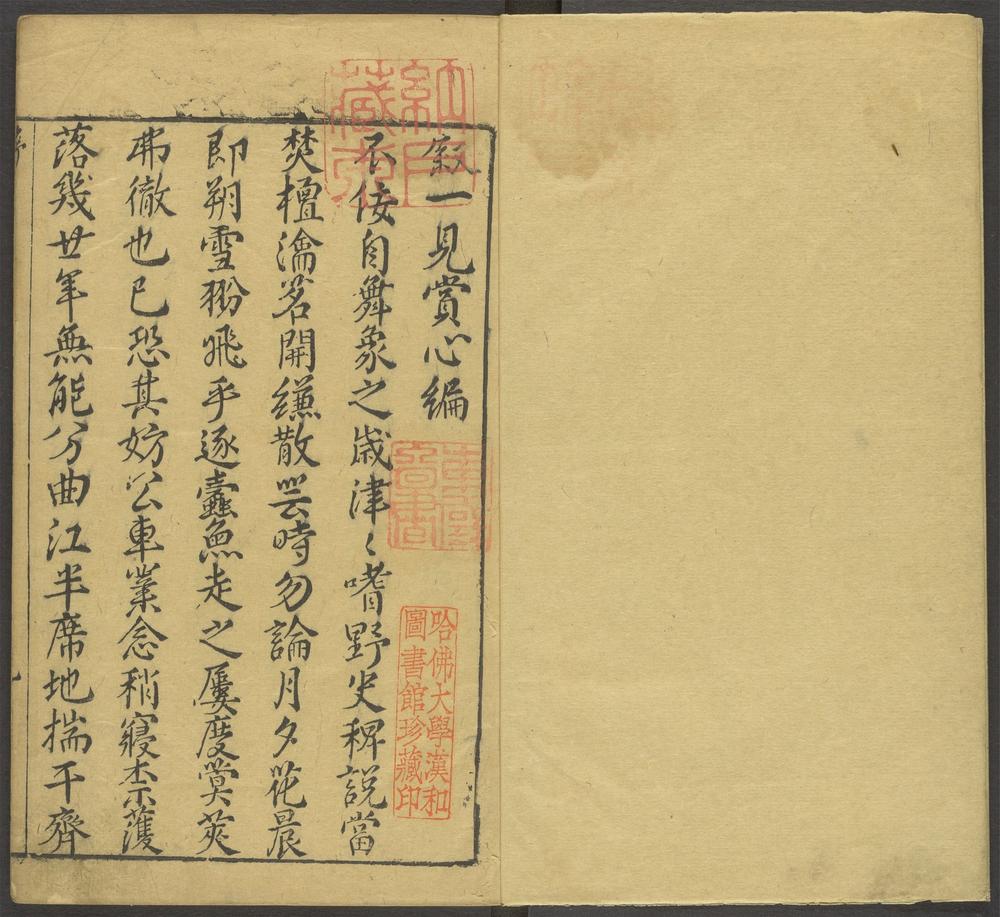 敘一見賞心編
不佞自舞象之歲津〻嗜野史稗說當
焚檀瀹茗開縑散帙時勿論月夕花晨
即朔雪翂飛乎逐蠹魚走之屢度蓂莢
弗徹也已恐其妨公車業念稍寢柰濩
落幾廿年無能分曲江半席地揣干齊
哈佛大學漢和
圖書館珍藏印